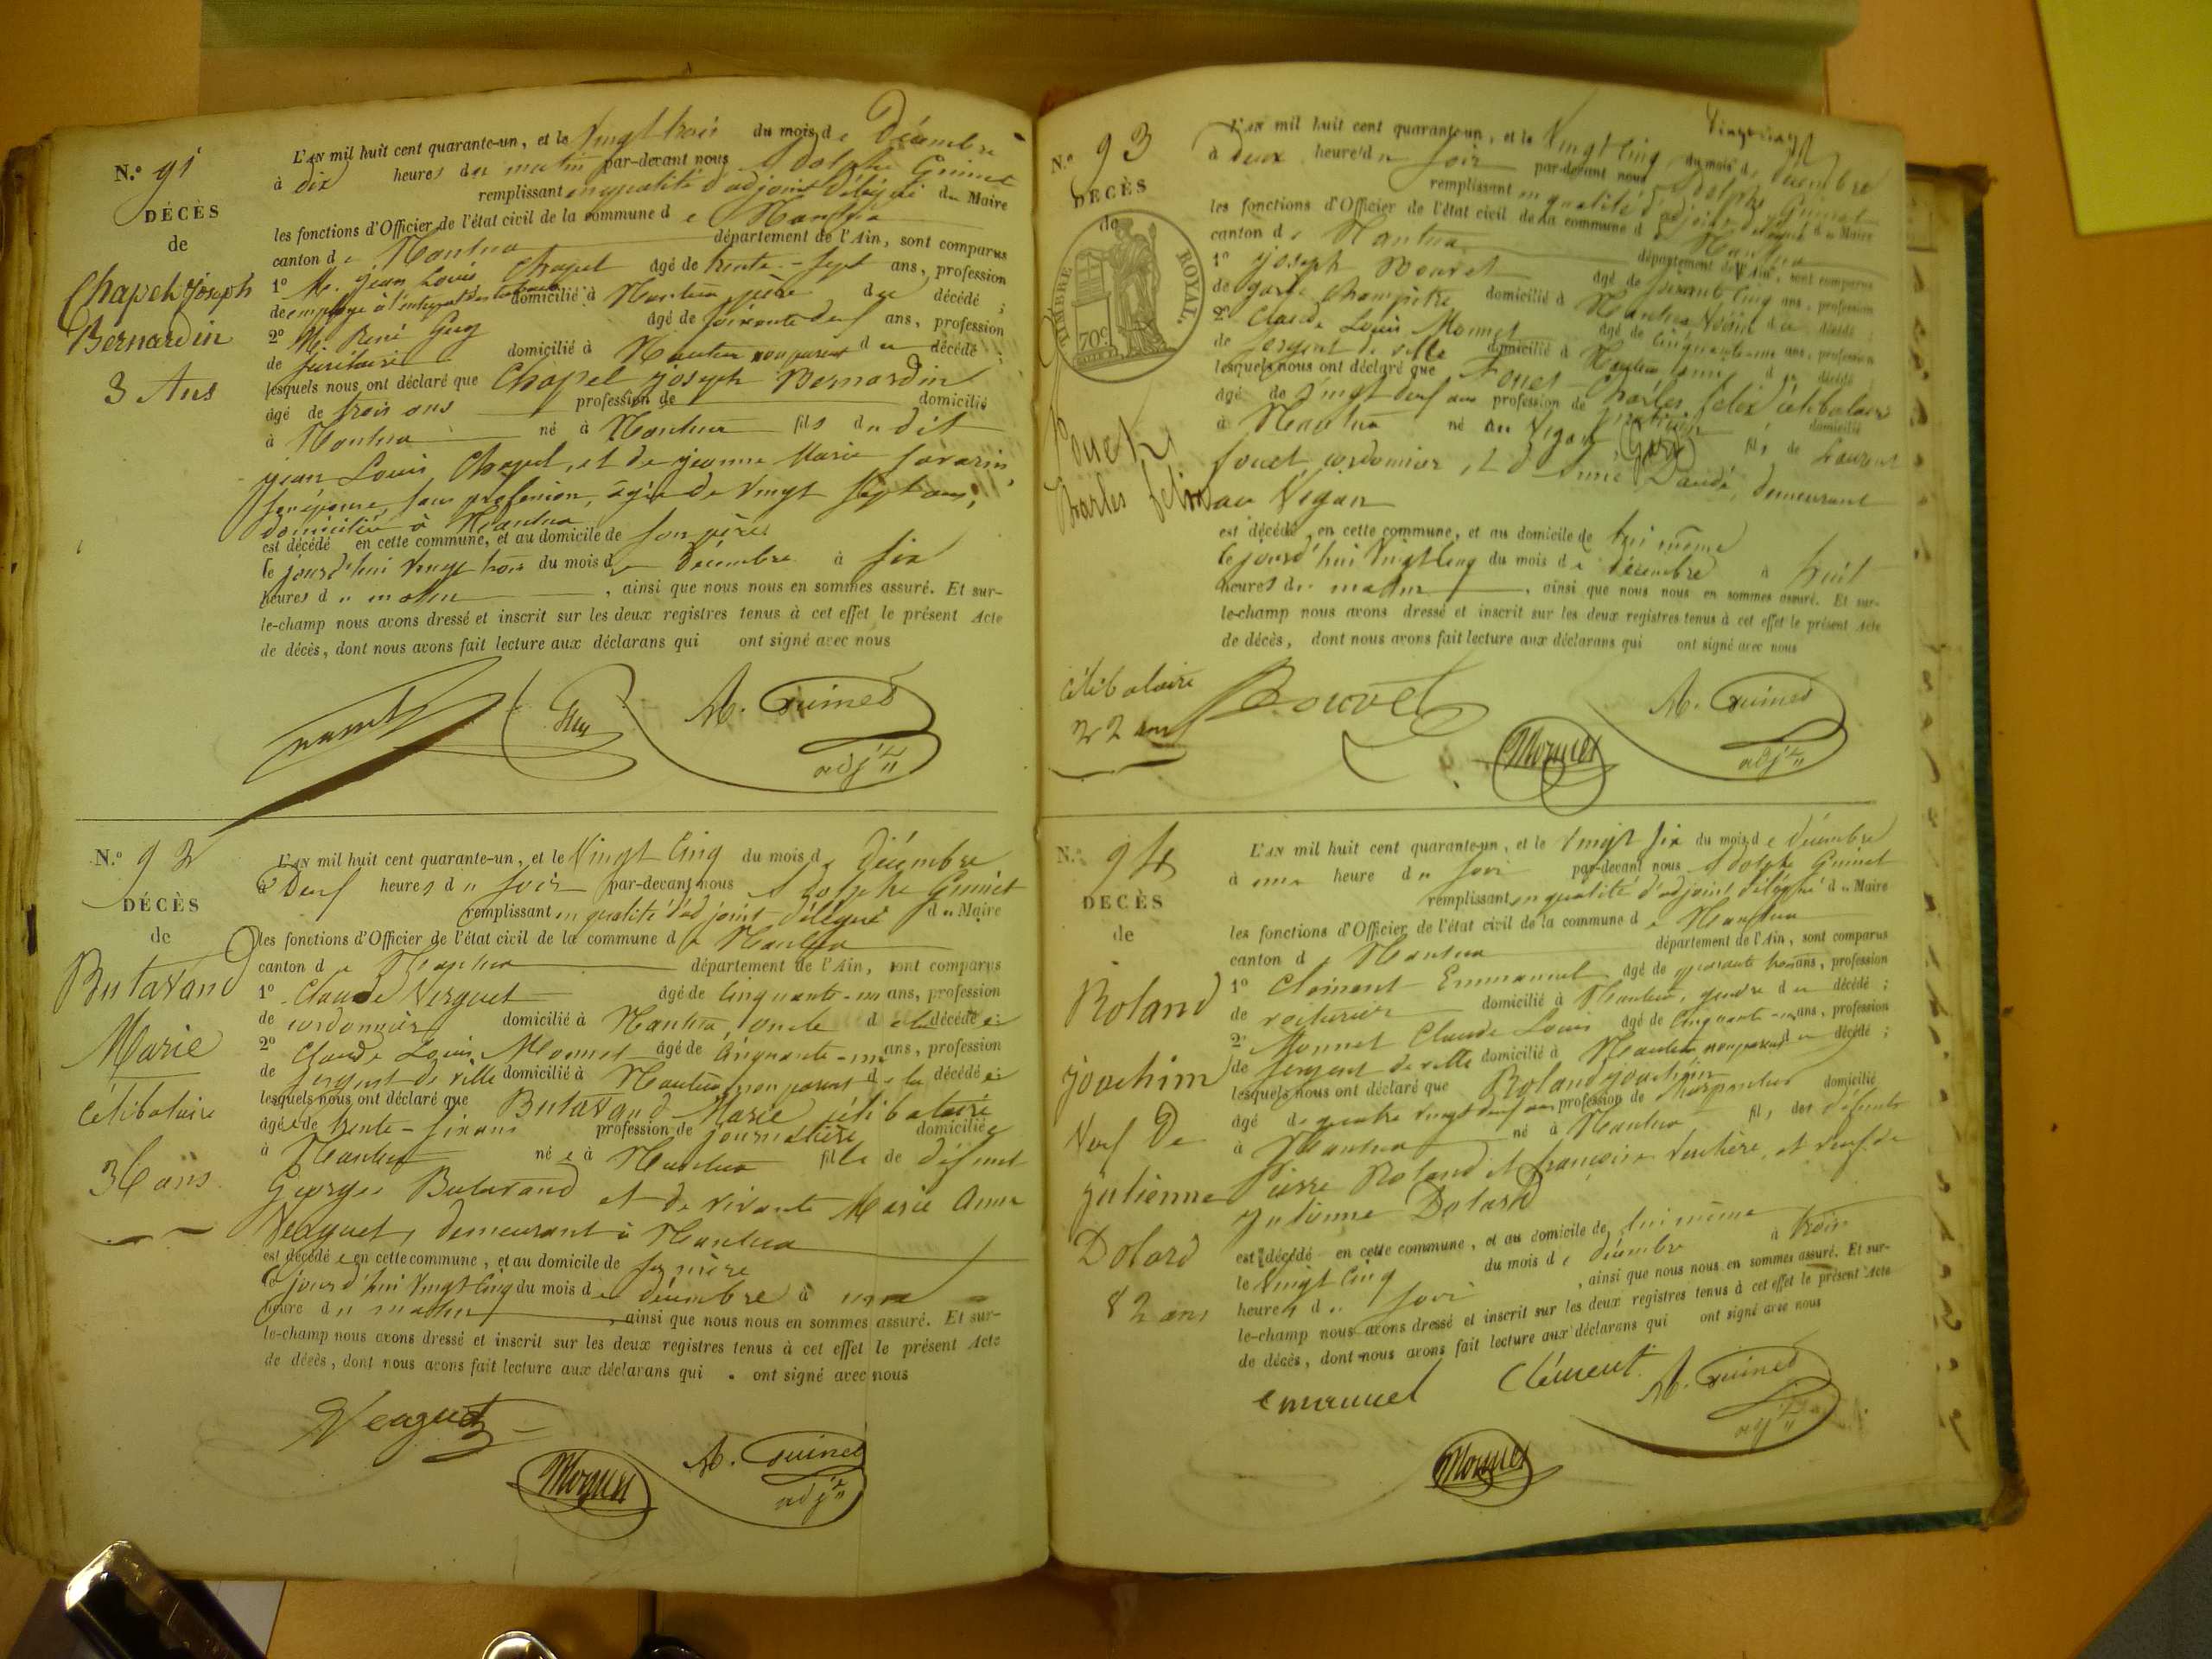 N.° 91
DÉCÈS
de
Chapel Joseph
Bernardin
3 Ans
L'AN mil huit cent quarante-un, et le Vingt trois du mois de Décembre
à dix heures du matin par-devant nous Adolphe Guinet
remplissant en qualité d'adjoint délégué du Maire
les fonctions d'Officier de l'état civil de la commune de Nantua
canton de Nantua département de l'Ain, sont comparus
1° M. Jean Louis Chapel âgé de trente-sept ans, profession
de employé à l'entrepôt des tabacs domicilié à Nantua père du décédé ;
2° M. René Guy âgé de soixante deux ans, profession
de domicilié à Nantua non parent du décédé ;
lesquels nous ont déclaré que Chapel Joseph Bernardin
âgé de trois ans profession de domicilié
à Nantua né à Nantua fils du dit
Jean Louis Chapel, et de Jeanne Marie Savarin,
son épouse, sans profession, âgée de Vingt Sept ans,
domiciliée à Nantua
est décédé en cette commune, et au domicile de son père
le jourd'hui Vingt trois du mois de Décembre à six
heures du matin, ainsi que nous nous en sommes assuré. Et sur-
le-champ nous avons dressé et inscrit sur les deux registres tenus à cet effet le présent Acte
de décès, dont nous avons fait lecture aux déclarans qui ont signé avec nous
Guy A. Guinet
adj.t
N.° 92
DÉCÈS
de
Butavand
Marie
célibataire
36 ans
L'AN mil huit cent quarante-un, et le Vingt Cinq du mois de Décembre
à Deux heures du soir par-devant nous Adolphe Guinet
remplissant en qualité d'adjoint délégué du Maire
les fonctions d'Officier de l'état civil de la commune de Nantua
canton de Nantua département de l'Ain, sont comparus
1° Claude Verguet âgé de Cinquante-un ans, profession
de cordonnier domicilié à Nantua, oncle de la décédée ;
2° Claude Louis Monnet âgé de Cinquante-un ans, profession
de sergent de ville domicilié à Nantua non parent de la décédée ;
lesquels nous ont déclaré que Butavand Marie célibataire
âgée de trente-six ans profession de journalière domiciliée
à Nantua née à Nantua fille de défunt
Georges Butavand et de vivante Marie Anne
Verguet, demeurant à Nantua
est décédée en cette commune, et au domicile de sa mère
le jourd'hui Vingt Cinq du mois de décembre à une
heure du matin, ainsi que nous nous en sommes assuré. Et sur-
le-champ nous avons dressé et inscrit sur les deux registres tenus à cet effet le présent Acte
de décès, dont nous avons fait lecture aux déclarans qui ont signé avec nous
Verguet
Monnet A. Guinet
adj.t
N.° 93
DECÈS
de
TIMBRE ROYAL.
70 c.
Fouet
Charles felix
célibataire
22 ans
L'AN mil huit cent quarante-un, et le Vingt Cinq du mois de Décembre
à Deux heures du soir par-devant nous Adolphe Guinet
remplissant en qualité d'adjoint délégué du Maire
les fonctions d'Officier de l'état civil de la commune de Nantua
canton de Nantua département de l'Ain, sont comparus
1° Joseph Bouvet âgé de soixante Cinq ans, profession
de garde Champêtre domicilié à Nantua Voisin du décédé ;
2° Claude Louis Monnet âgé de Cinquante-un ans, profession
de sergent de ville domicilié à Nantua ami du décédé ;
lesquels nous ont déclaré que Fouet Charles felix célibataire
âgé de Vingt deux ans profession de domicilié
à Nantua né au Vigan (Gard) fils de Laurent
fouet, cordonnier, et d'Anne Daudé, demeurant
au Vigan
est décédé en cette commune, et au domicile de lui même
le jourd'hui Vingt Cinq du mois de décembre à huit
heures du matin, ainsi que nous nous en sommes assuré. Et sur-
le-champ nous avons dressé et inscrit sur les deux registres tenus à cet effet le présent Acte
de décès, dont nous avons fait lecture aux déclarans qui ont signé avec nous
Bouvet Monnet A. Guinet
adj.t
N.° 94
DECÈS
de
Roland
Joachim
Veuf De
Julienne
Dolard
82 ans
L'AN mil huit cent quarante-un, et le Vingt six du mois de Décembre
à une heure du soir par-devant nous Adolphe Guinet
remplissant en qualité d'adjoint délégué du Maire
les fonctions d'Officier de l'état civil de la commune de Nantua
canton de Nantua département de l'Ain, sont comparus
1° Clément Emmanuel âgé de quarante trois ans, profession
de voiturier domicilié à Nantua, gendre du décédé ;
2° Monnet Claude Louis âgé de Cinquante-un ans, profession
de sergent de ville domicilié à Nantua non parent du décédé ;
lesquels nous ont déclaré que Roland Joachim
âgé de quatre vingt deux ans profession de charpentier domicilié
à Nantua né à Nantua fils des défunts
Pierre Roland et françoise, et veuf de
Julienne Dolard
est décédé en cette commune, et au domicile de lui même
le Vingt Cinq du mois de décembre à trois
heures du soir, ainsi que nous nous en sommes assuré. Et sur-
le-champ nous avons dressé et inscrit sur les deux registres tenus à cet effet le présent Acte
de décès, dont nous avons fait lecture aux déclarans qui ont signé avec nous
emanuel Clément A. Guinet
adj.t
Monnet